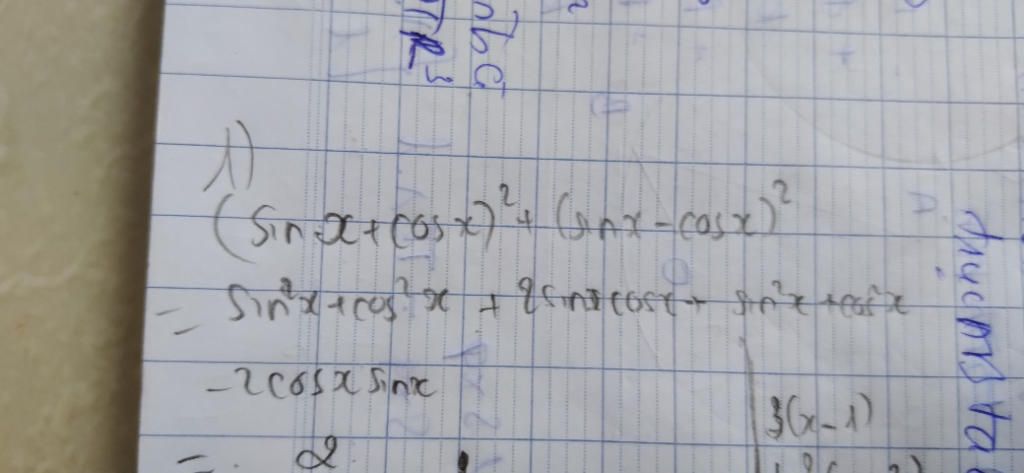 1)
(sin x + cos x)² + (sin x - cos x)²
= sin²x + cos²x + 2 sin x cos x + sin²x + cos²x
- 2 cos x sin x
3(x-1)
= 2